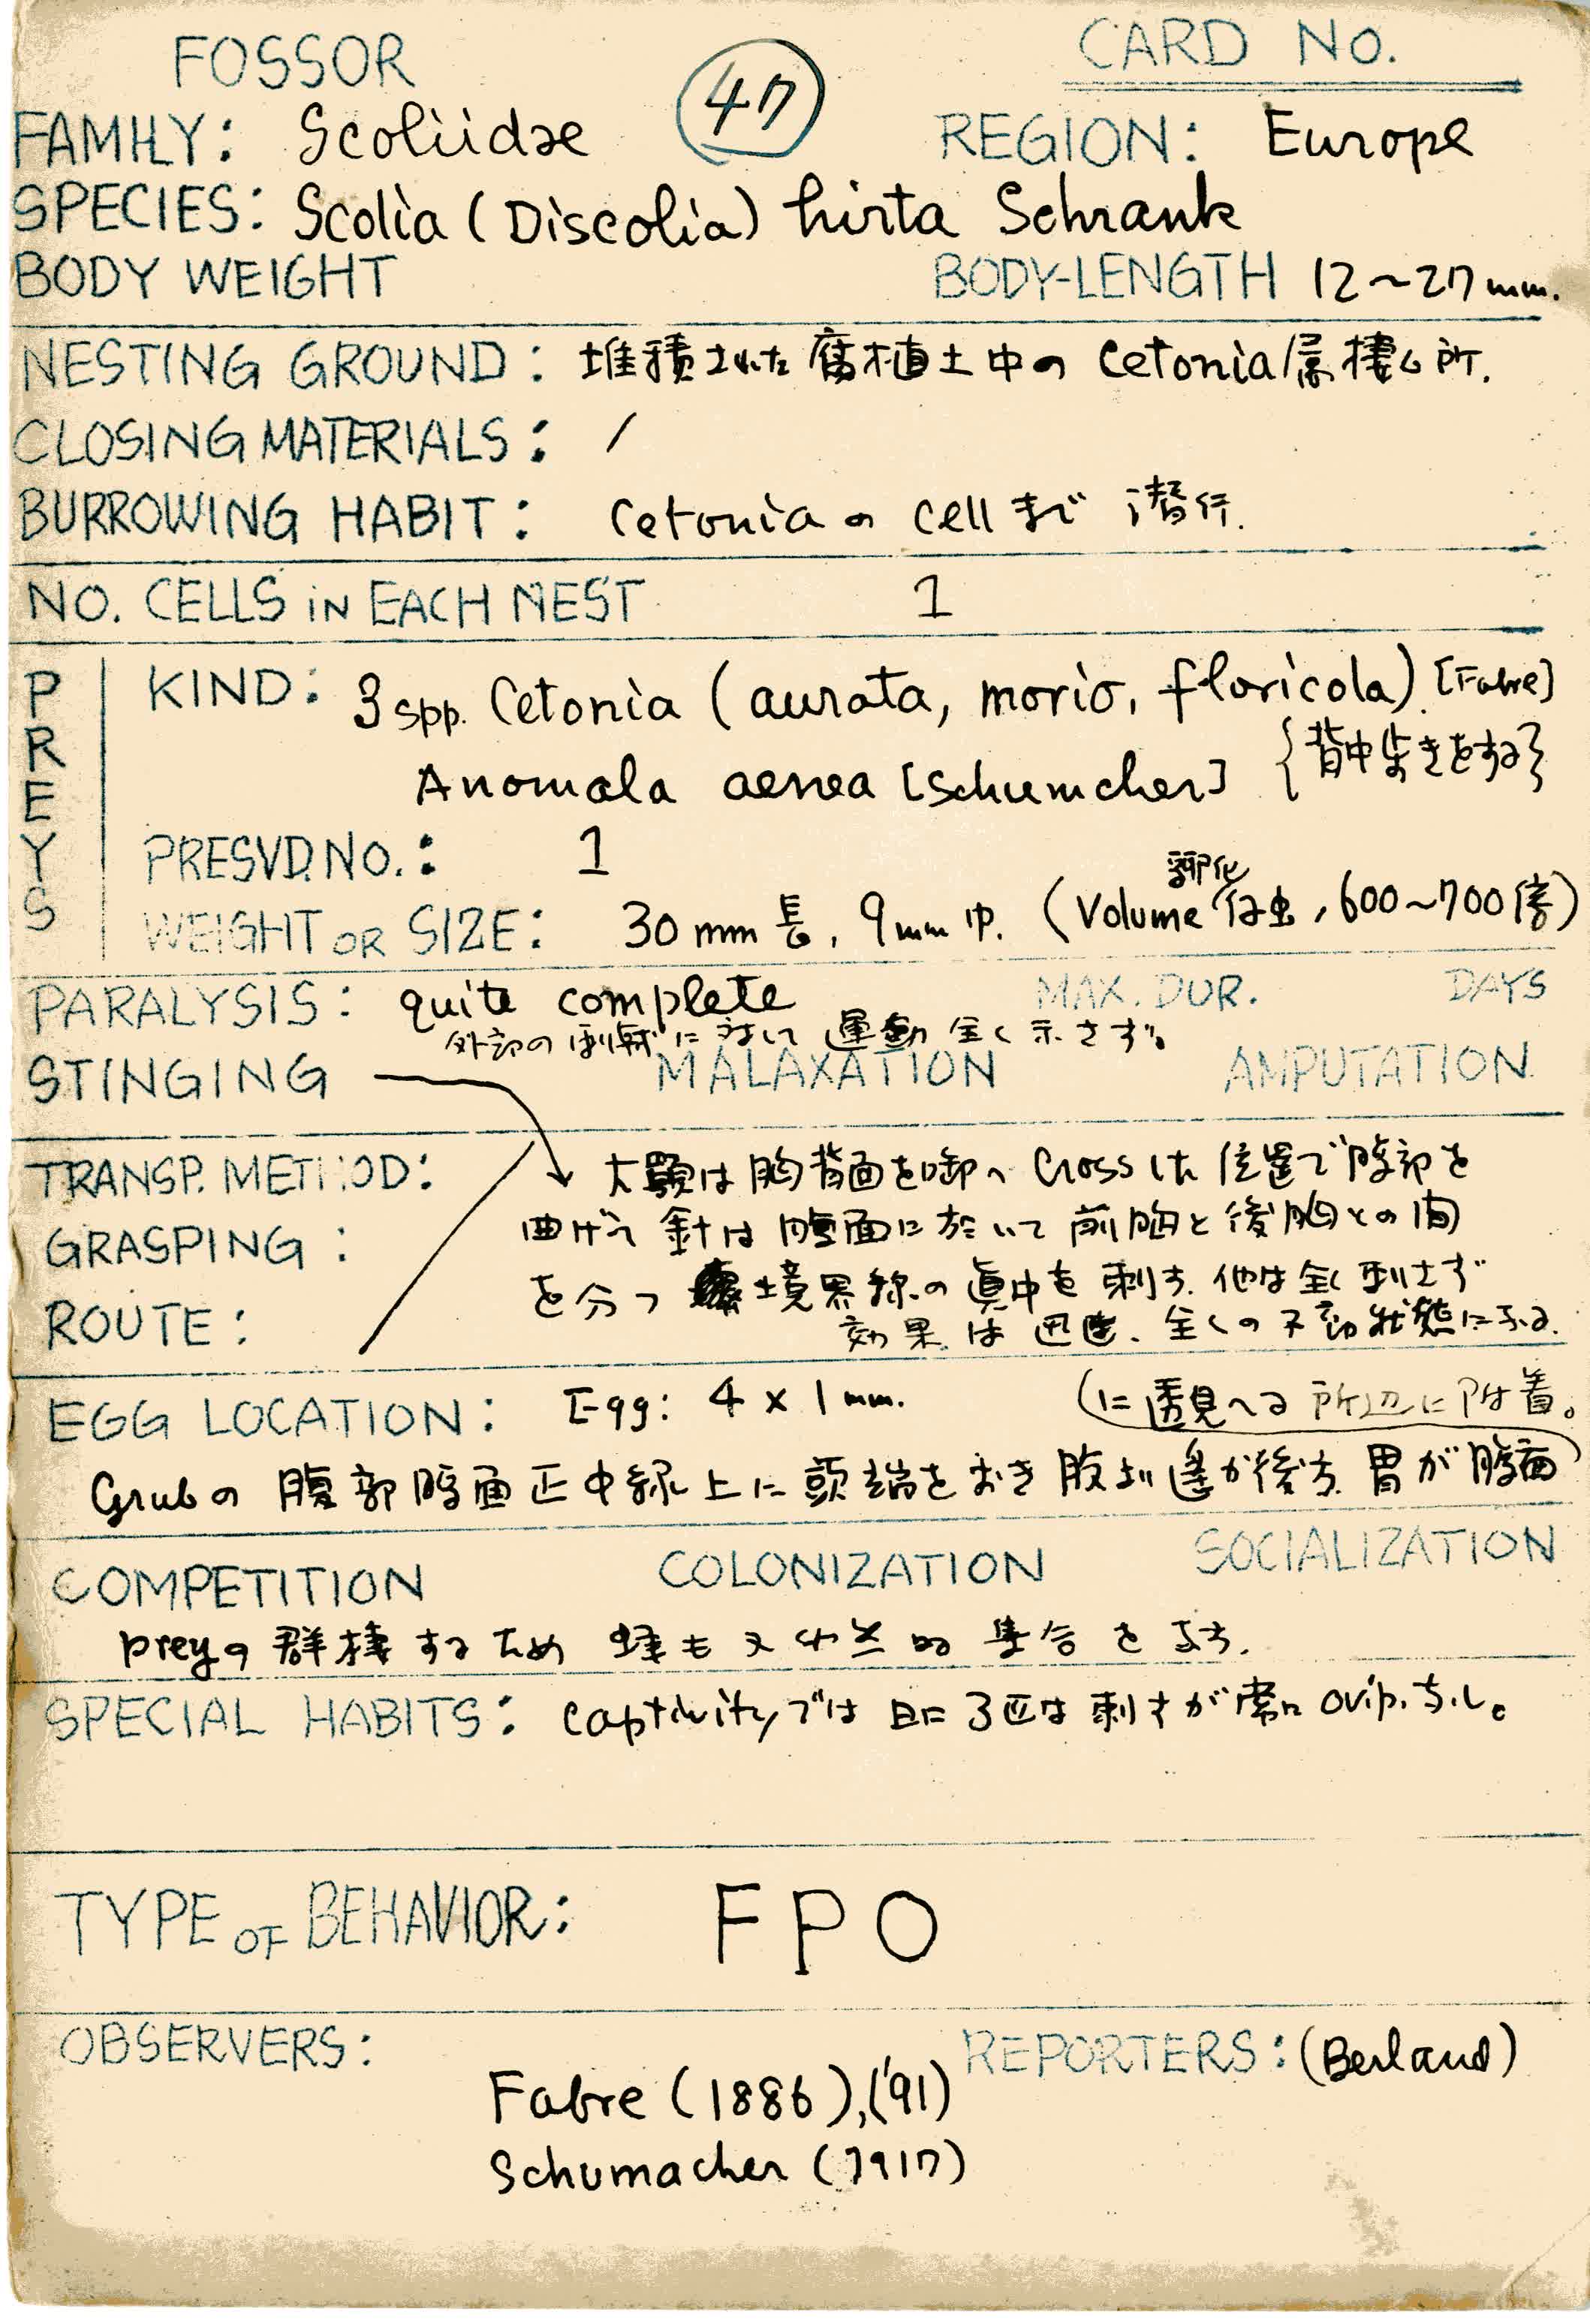 FOSSOR
CARD No.
47
FAMILY: Scoliidae
REGION: Europe
SPECIES: Scolia (Discolia) hirta Schrank
BODY WEIGHT
BODY-LENGTH 12~27mm.
NESTING GROUND: 堆積された腐植土中の Cetonia属棲む所.
CLOSING MATERIALS: /
BURROWING HABIT: Cetoniaの cellまで 潜行.
NO. CELLS IN EACH NEST 1
PREYS
KIND: 3spp. Cetonia (aurata, morio, floricola) [Fabre]
Anomala aenea [Schumcher] {背中歩きをする}
PRESVD.NO.: 1
孵化
WEIGHT OR SIZE: 30mm長, 9mm巾. (Volume 仔虫, 600~700倍)
PARALYSIS: quite complete
MAX. DUR. DAYS
外部の刺戟に対して 運動 全く示さず。
STINGING
MALAXATION
AMPUTATION
TRANSP. METHOD: 大顎は胸背面を咖へ Crossした 位置で腹部を
GRASPING: 曲げて 針は 腹面に於いて 前胸と後胸との間
を分つ 境界線の 真中を 刺す. 他は全く刺さず
ROUTE: 効果は 迅速. 全くの不動状態になる.
EGG LOCATION: Egg: 4 x 1mm.
(に透見へる 所辺に附着。
Grubの 腹部腹面正中線上に頭端をおき 肢より遙か後方. 胃が腹面
COMPETITION
COLONIZATION
SOCIALIZATION
preyの群棲するため 蜂も又 的 集合をなす.
SPECIAL HABITS: Captivityでは 日に3匹は刺すが常に ovip.なし。
TYPE OF BEHAVIOR: FPO
OBSERVERS:
REPORTERS: (Berland)
Fabre (1886), ('91)
Schumacher (1917)